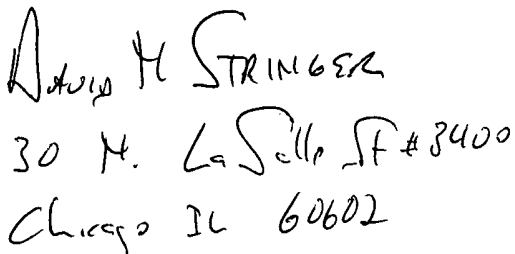 David M Stringer
30 N. LaSalle St #3400
Chicago IL 60602